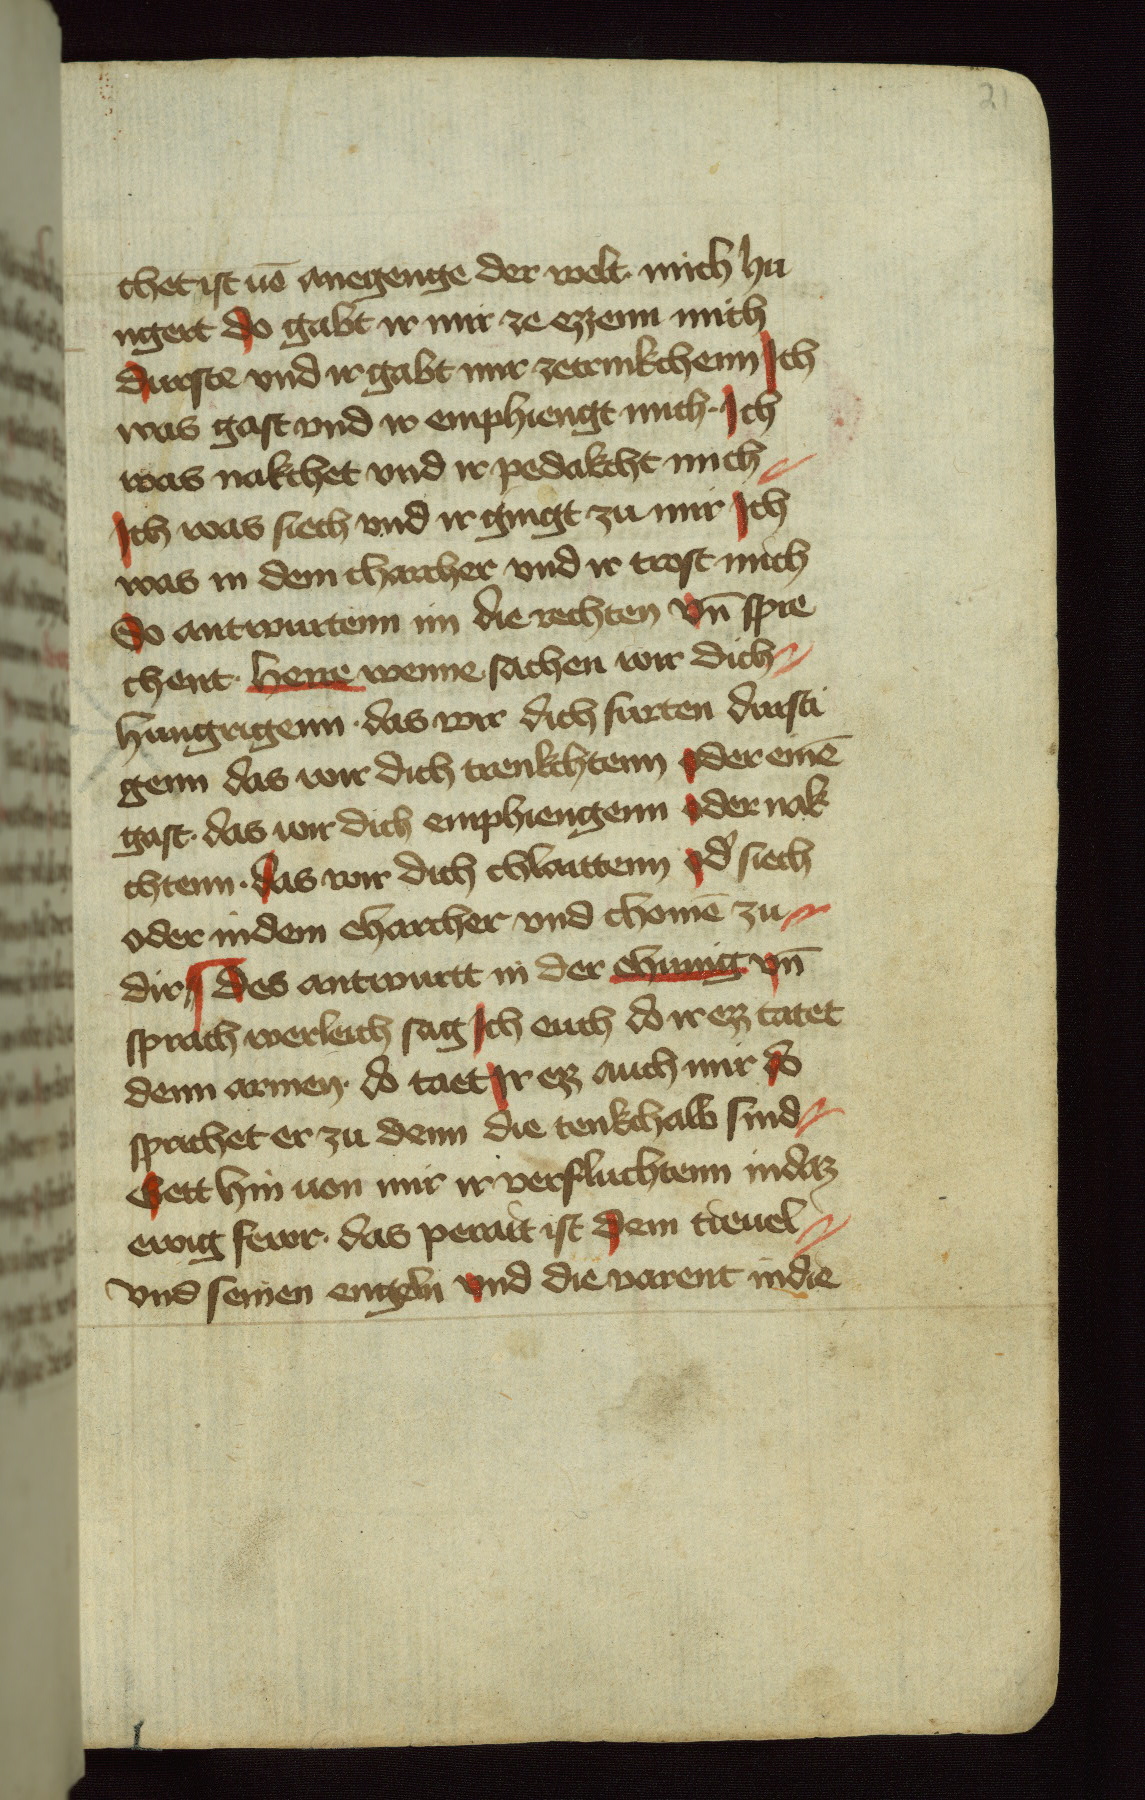 21
chet ist uō anegenge der welt. mich hu
ngert do gabt ir mir ze ezzenn mich
durste vnd ir gabt mir zetrinkchenn Ich
was gast vnd ir emphiengt mich. Ich
was nakchet vnd ir pedakcht mich
Ich was siech vnd ir gingt zu mir Ich
was in dem charcher vnd ir trost mich
Do antwurtenn im die rechten vn̄ spre
chent. herre wenne sachen wir dich
hungrigenn. das wir dich furten dursti
genn das wir dich trenkchtenn oder einē
gast. das wir dich emphiengenn oder nak
chtenn. das wir dich chlaittenn od̾ siech
oder indem charcher vnd chomē zu
dir Des antwurtt in der chunig vn̄
sprach werleich sag Ich euch do ir ez tatet
denn armen. do taet Ir ez auch mir do
sprichet er zu denn die tenkchalb sind
Gett hin uon mir ir verfluchtenn indaz
ewig fewr. das perait ist dem tieuel
vnd seinen engeln vnd die varent indie